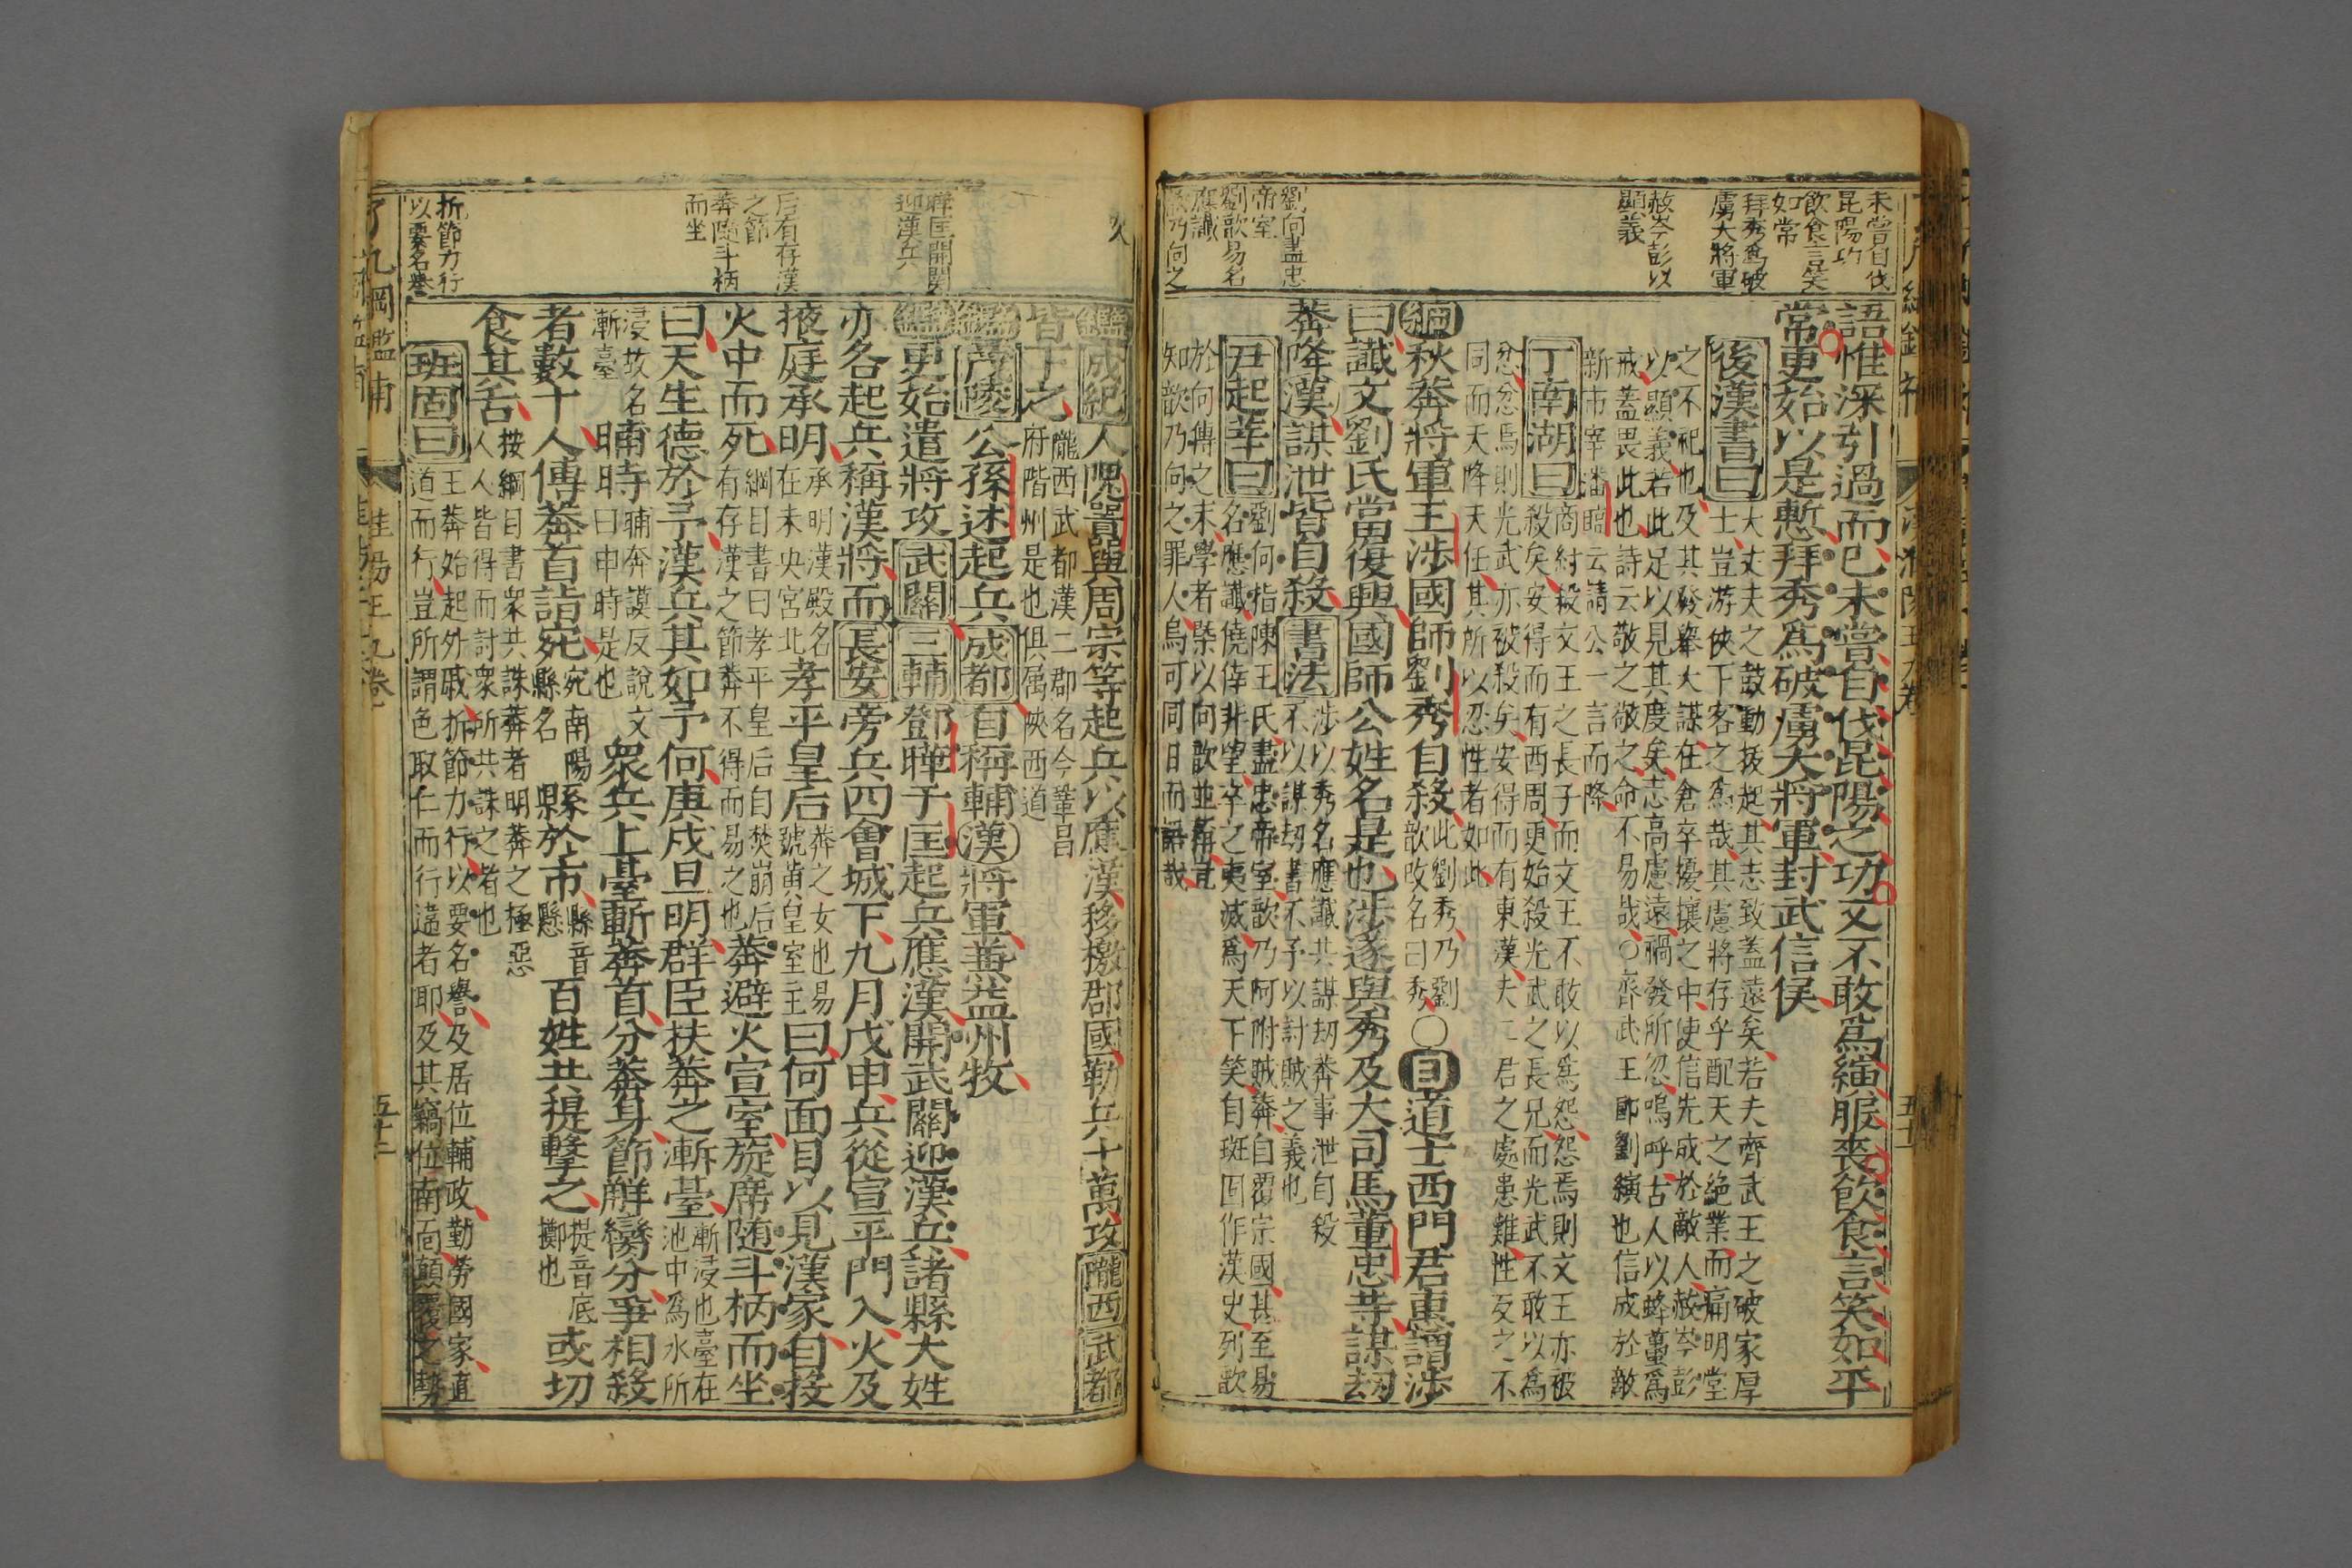 未嘗自伐
昆陽功
飲食言笑
如常
拜秀爲破
虜大將軍
赦岑彭以
顯義
劉向盡忠
帝室
劉歆易名
應讖
語惟深引過而已未嘗自伐昆陽之功又不敢爲縯服喪飲食言笑如平
常更始以是慙拜秀爲破虜大將軍封武信侯
後漢書曰大丈夫之鼓動拔起其志致蓋遠矣若夫齊武王之破家厚
士豈游俠下客之爲哉其慮將存乎配天之絶業而痛明堂
之不祀也及其發舉大謀在倉卒擾攘之中使信先成於敵人赦岑彭
以顯義若此足以見其度矣志高慮遠禍發所忽嗚呼古人以蜂蠆爲
戒蓋畏此也詩云敬之敬之命不易哉○齊武王即劉縯也信成於敵
新市宰潘臨云請公一言而降
丁南湖曰商紂殺文王之長子而文王不敢以爲怨怨焉則文王亦被
殺矣安得而有西周更始殺光武之長兄而光武不敢以爲
忿忿焉則光武亦被殺矣安得而有東漢夫二君之處患難性反之不
同而天降大任其所以忍性者如此
綱秋莽將軍王涉國師劉秀自殺此劉秀乃劉歆改名曰秀○目道士西門君惠謂涉
曰讖文劉氏當復興國師公姓名是也涉遂與秀及大司馬董忠等謀劫
莽降漢謀泄皆自殺書法涉以秀名應讖共謀劫莽事泄自殺不以謀劫書不予以討賊之義也
尹起莘曰劉向指陳王氏盡忠帝室歆乃阿附賊莽自覆宗國甚至易
名應讖僥倖非望卒之夷滅爲天下笑自班固作漢史列歆
於向傳之末學者槩以向歆並稱豈
知歆乃向之罪人烏可同日而語哉
曄匡開關
迎漢兵
后有存漢
之節
莽隨斗柄
而坐
折節力行
以要名譽
鑑成紀人隗囂與周宗等起兵以應漢移檄郡國勒兵十萬攻隴西武都
皆下之隴西武都漢二郡名今鞏昌府階州是也俱属陝西道
鑑茂陵公孫述起兵成都自稱輔漢將軍兼益州牧
鑑更始遣將攻武關三輔鄧曄于匡起兵應漢開武關迎漢兵諸縣大姓
亦名起兵稱漢將而長安旁兵四會城下九月戊申兵從宣平門入火及
掖庭承明承明漢殿名在未央宮北孝平皇后莽之女也易號黃皇室主曰何面目以見漢家自投
火中而死綱目書曰孝平皇后自焚崩后有存漢之節莽不得而易之也莽避火宣室旋席随斗柄而坐
曰天生德於予漢兵其如予何庚戌旦明群臣扶莽之漸臺漸浸也臺在池中爲水所
浸故名漸臺晡時晡奔謨反說文曰申時是也衆兵上臺斬莽首分莽身節解臠分爭相殺
者數十人傳莽首詣宛宛南陽縣名縣於市縣音懸百姓共提擊之提音底擲也或切
食其舌按綱目書衆共誅莽者明莽之極惡人人皆得而討衆所共誅之者也
班固曰王莽始起外戚折節力行以要名譽及居位輔政勤勞國家直
道而行豈所謂色取仁而行違者耶及其竊位南面顛覆之勢